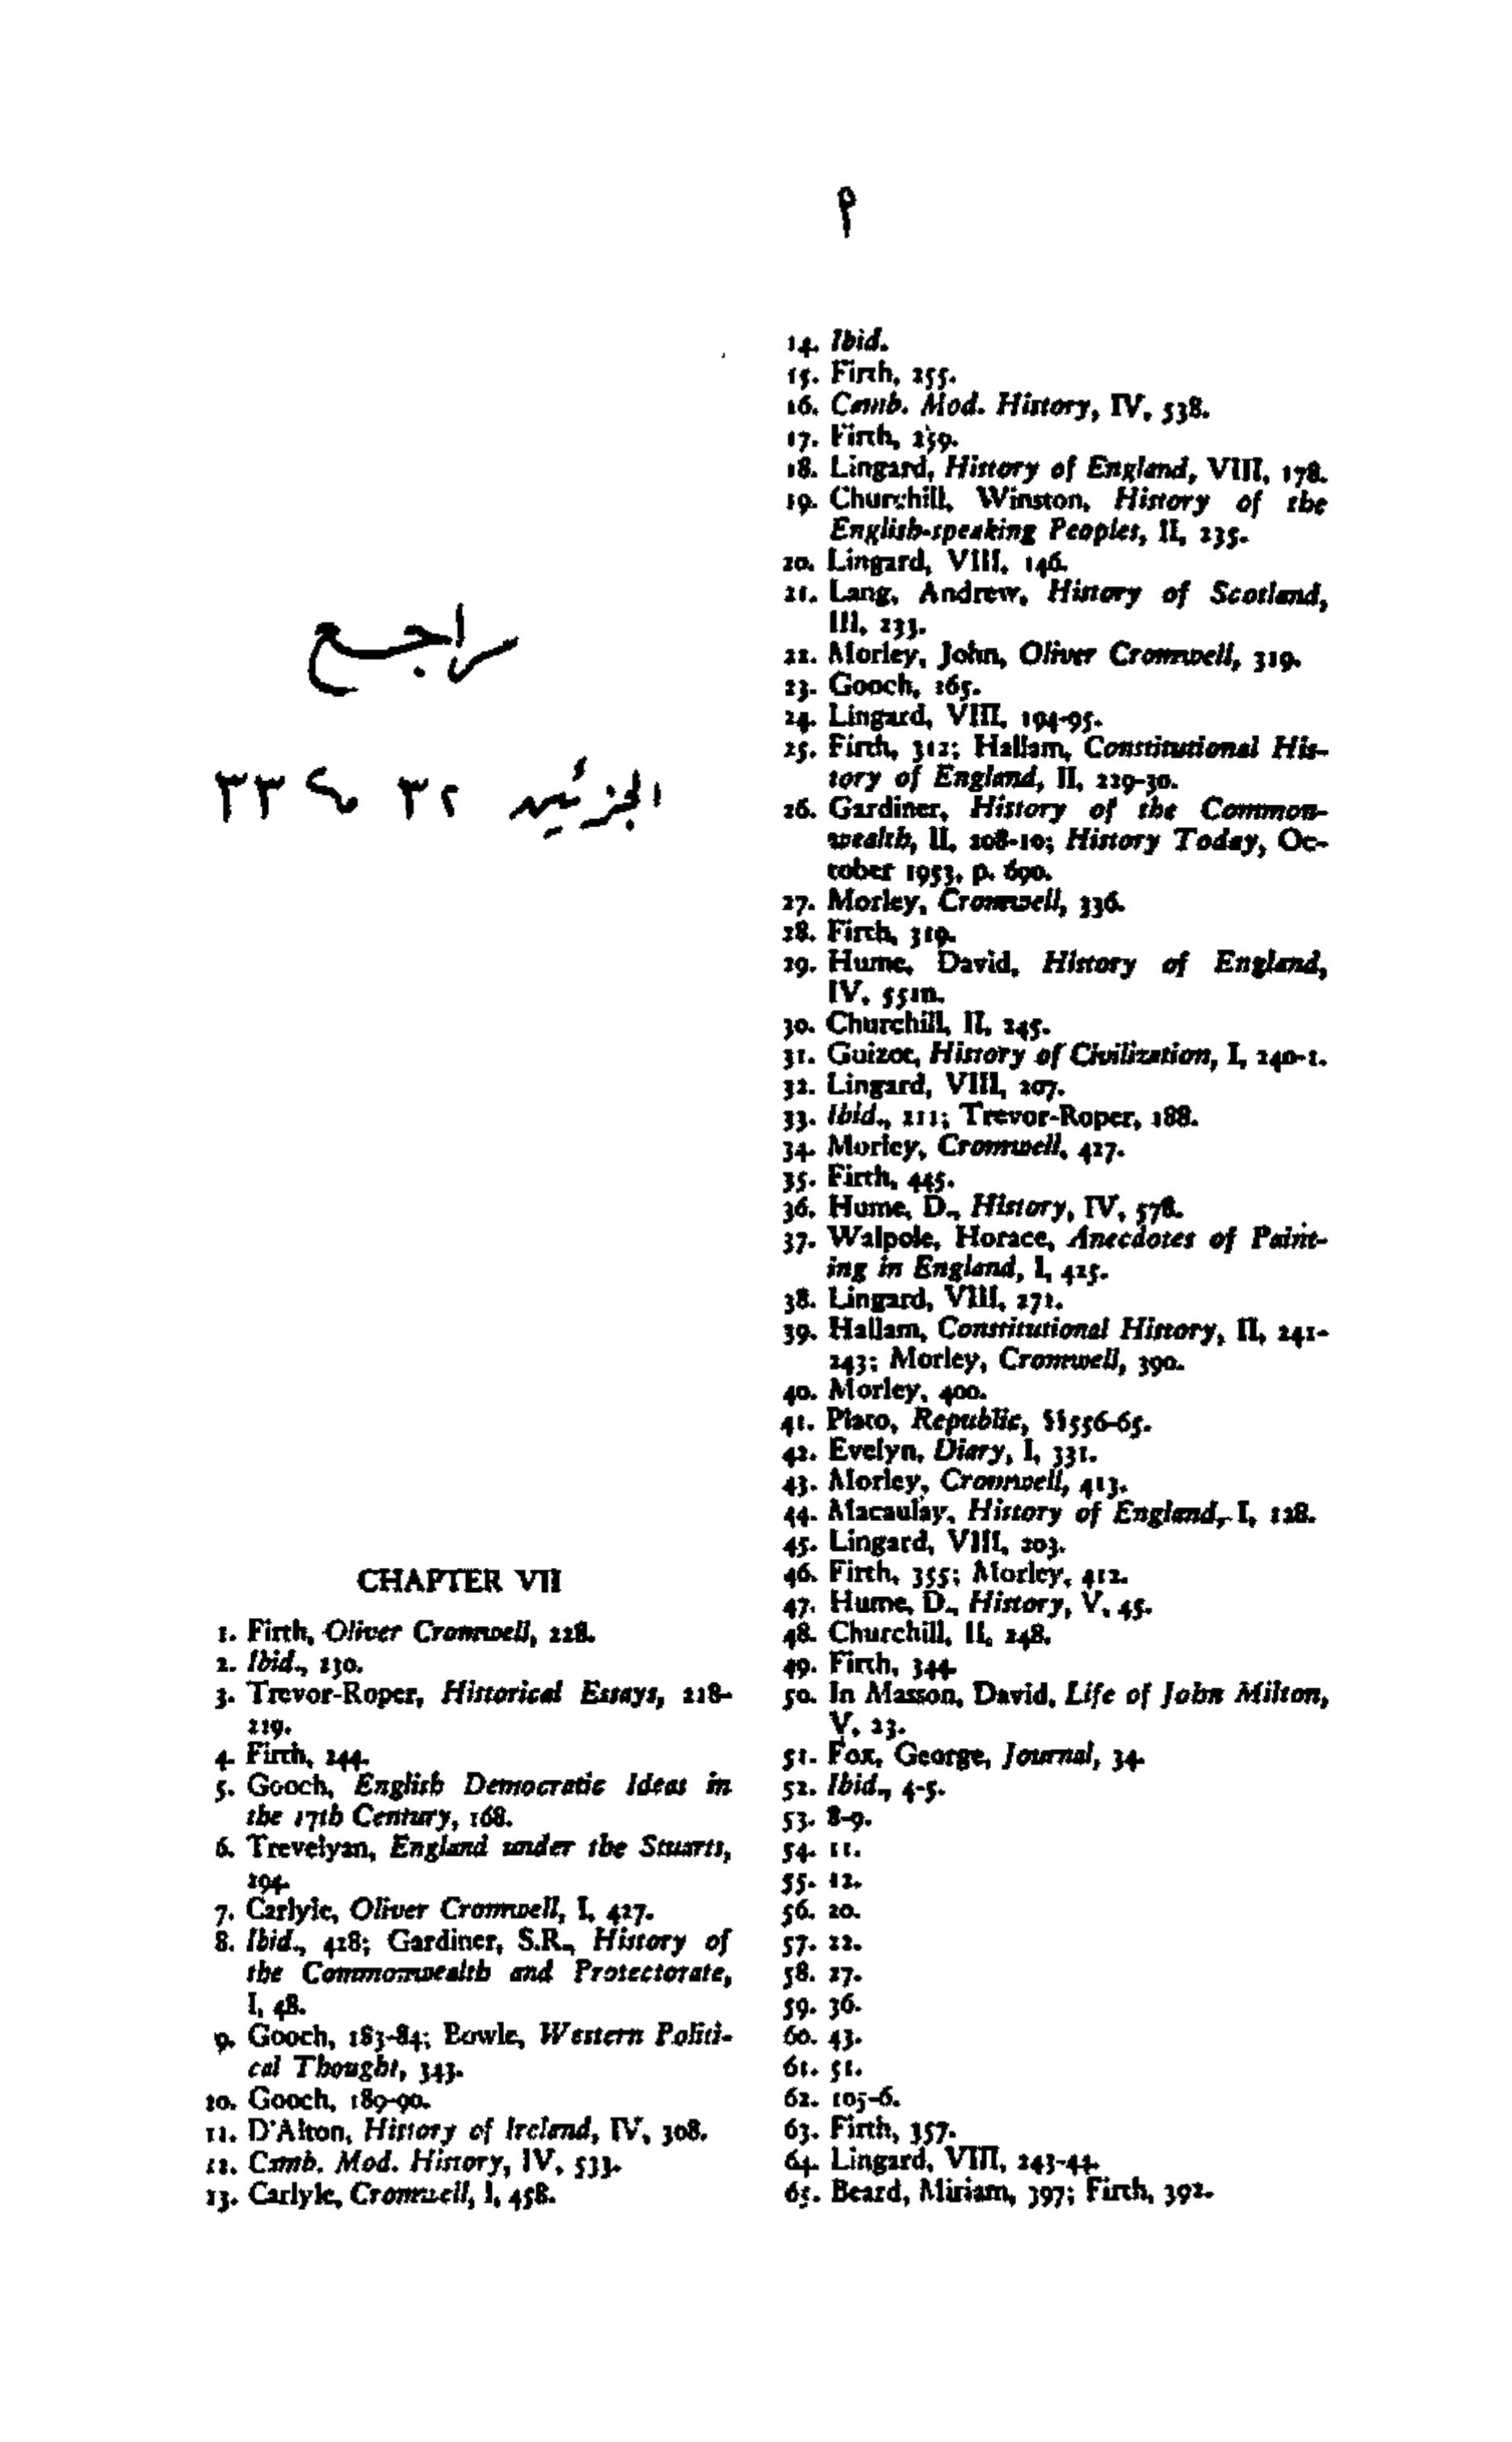 م
مراجع
الجزئين ٣٢ و ٣٣
CHAPTER VII
1. Firth, Oliver Cromwell, 228.
2. Ibid., 230.
3. Trevor-Roper, Historical Essays, 218-
219.
4. Firth, 244.
5. Gooch, English Democratic Ideas in
the 17th Century, 168.
6. Trevelyan, England under the Stuarts,
294.
7. Carlyle, Oliver Cromwell, I, 427.
8. Ibid., 428; Gardiner, S.R., History of
the Commonwealth and Protectorate,
I, 48.
9. Gooch, 183-84; Bowle, Western Politi-
cal Thought, 343.
10. Gooch, 189-90.
11. D'Alton, History of Ireland, IV, 308.
12. Camb. Mod. History, IV, 533.
13. Carlyle, Cromwell, I, 458.
14. Ibid.
15. Firth, 255.
16. Camb. Mod. History, IV, 538.
17. Firth, 259.
18. Lingard, History of England, VIII, 178.
19. Churchill, Winston, History of the
English-speaking Peoples, II, 235.
20. Lingard, VIII, 146.
21. Lang, Andrew, History of Scotland,
III, 233.
22. Morley, John, Oliver Cromwell, 319.
23. Gooch, 265.
24. Lingard, VIII, 194-95.
25. Firth, 312; Hallam, Constitutional His-
tory of England, II, 229-30.
26. Gardiner, History of the Common-
wealth, II, 208-10; History Today, Oc-
tober 1953, p. 690.
27. Morley, Cromwell, 336.
28. Firth, 319.
29. Hume, David, History of England,
IV, 551n.
30. Churchill, II, 245.
31. Guizot, History of Civilization, I, 240-1.
32. Lingard, VIII, 207.
33. Ibid., 211; Trevor-Roper, 188.
34. Morley, Cromwell, 427.
35. Firth, 445.
36. Hume, D., History, IV, 578.
37. Walpole, Horace, Anecdotes of Paint-
ing in England, I, 425.
38. Lingard, VIII, 271.
39. Hallam, Constitutional History, II, 241-
243; Morley, Cromwell, 390.
40. Morley, 400.
41. Plato, Republic, §§556-65.
42. Evelyn, Diary, I, 331.
43. Morley, Cromwell, 413.
44. Macaulay, History of England, I, 128.
45. Lingard, VIII, 203.
46. Firth, 355; Morley, 412.
47. Hume, D., History, V, 45.
48. Churchill, II, 248.
49. Firth, 344.
50. In Masson, David, Life of John Milton,
V, 23.
51. Fox, George, Journal, 34.
52. Ibid., 4-5.
53. 8-9.
54. 11.
55. 12.
56. 20.
57. 22.
58. 27.
59. 36.
60. 43.
61. 51.
62. 105-6.
63. Firth, 357.
64. Lingard, VIII, 243-44.
65. Beard, Miriam, 397; Firth, 392.